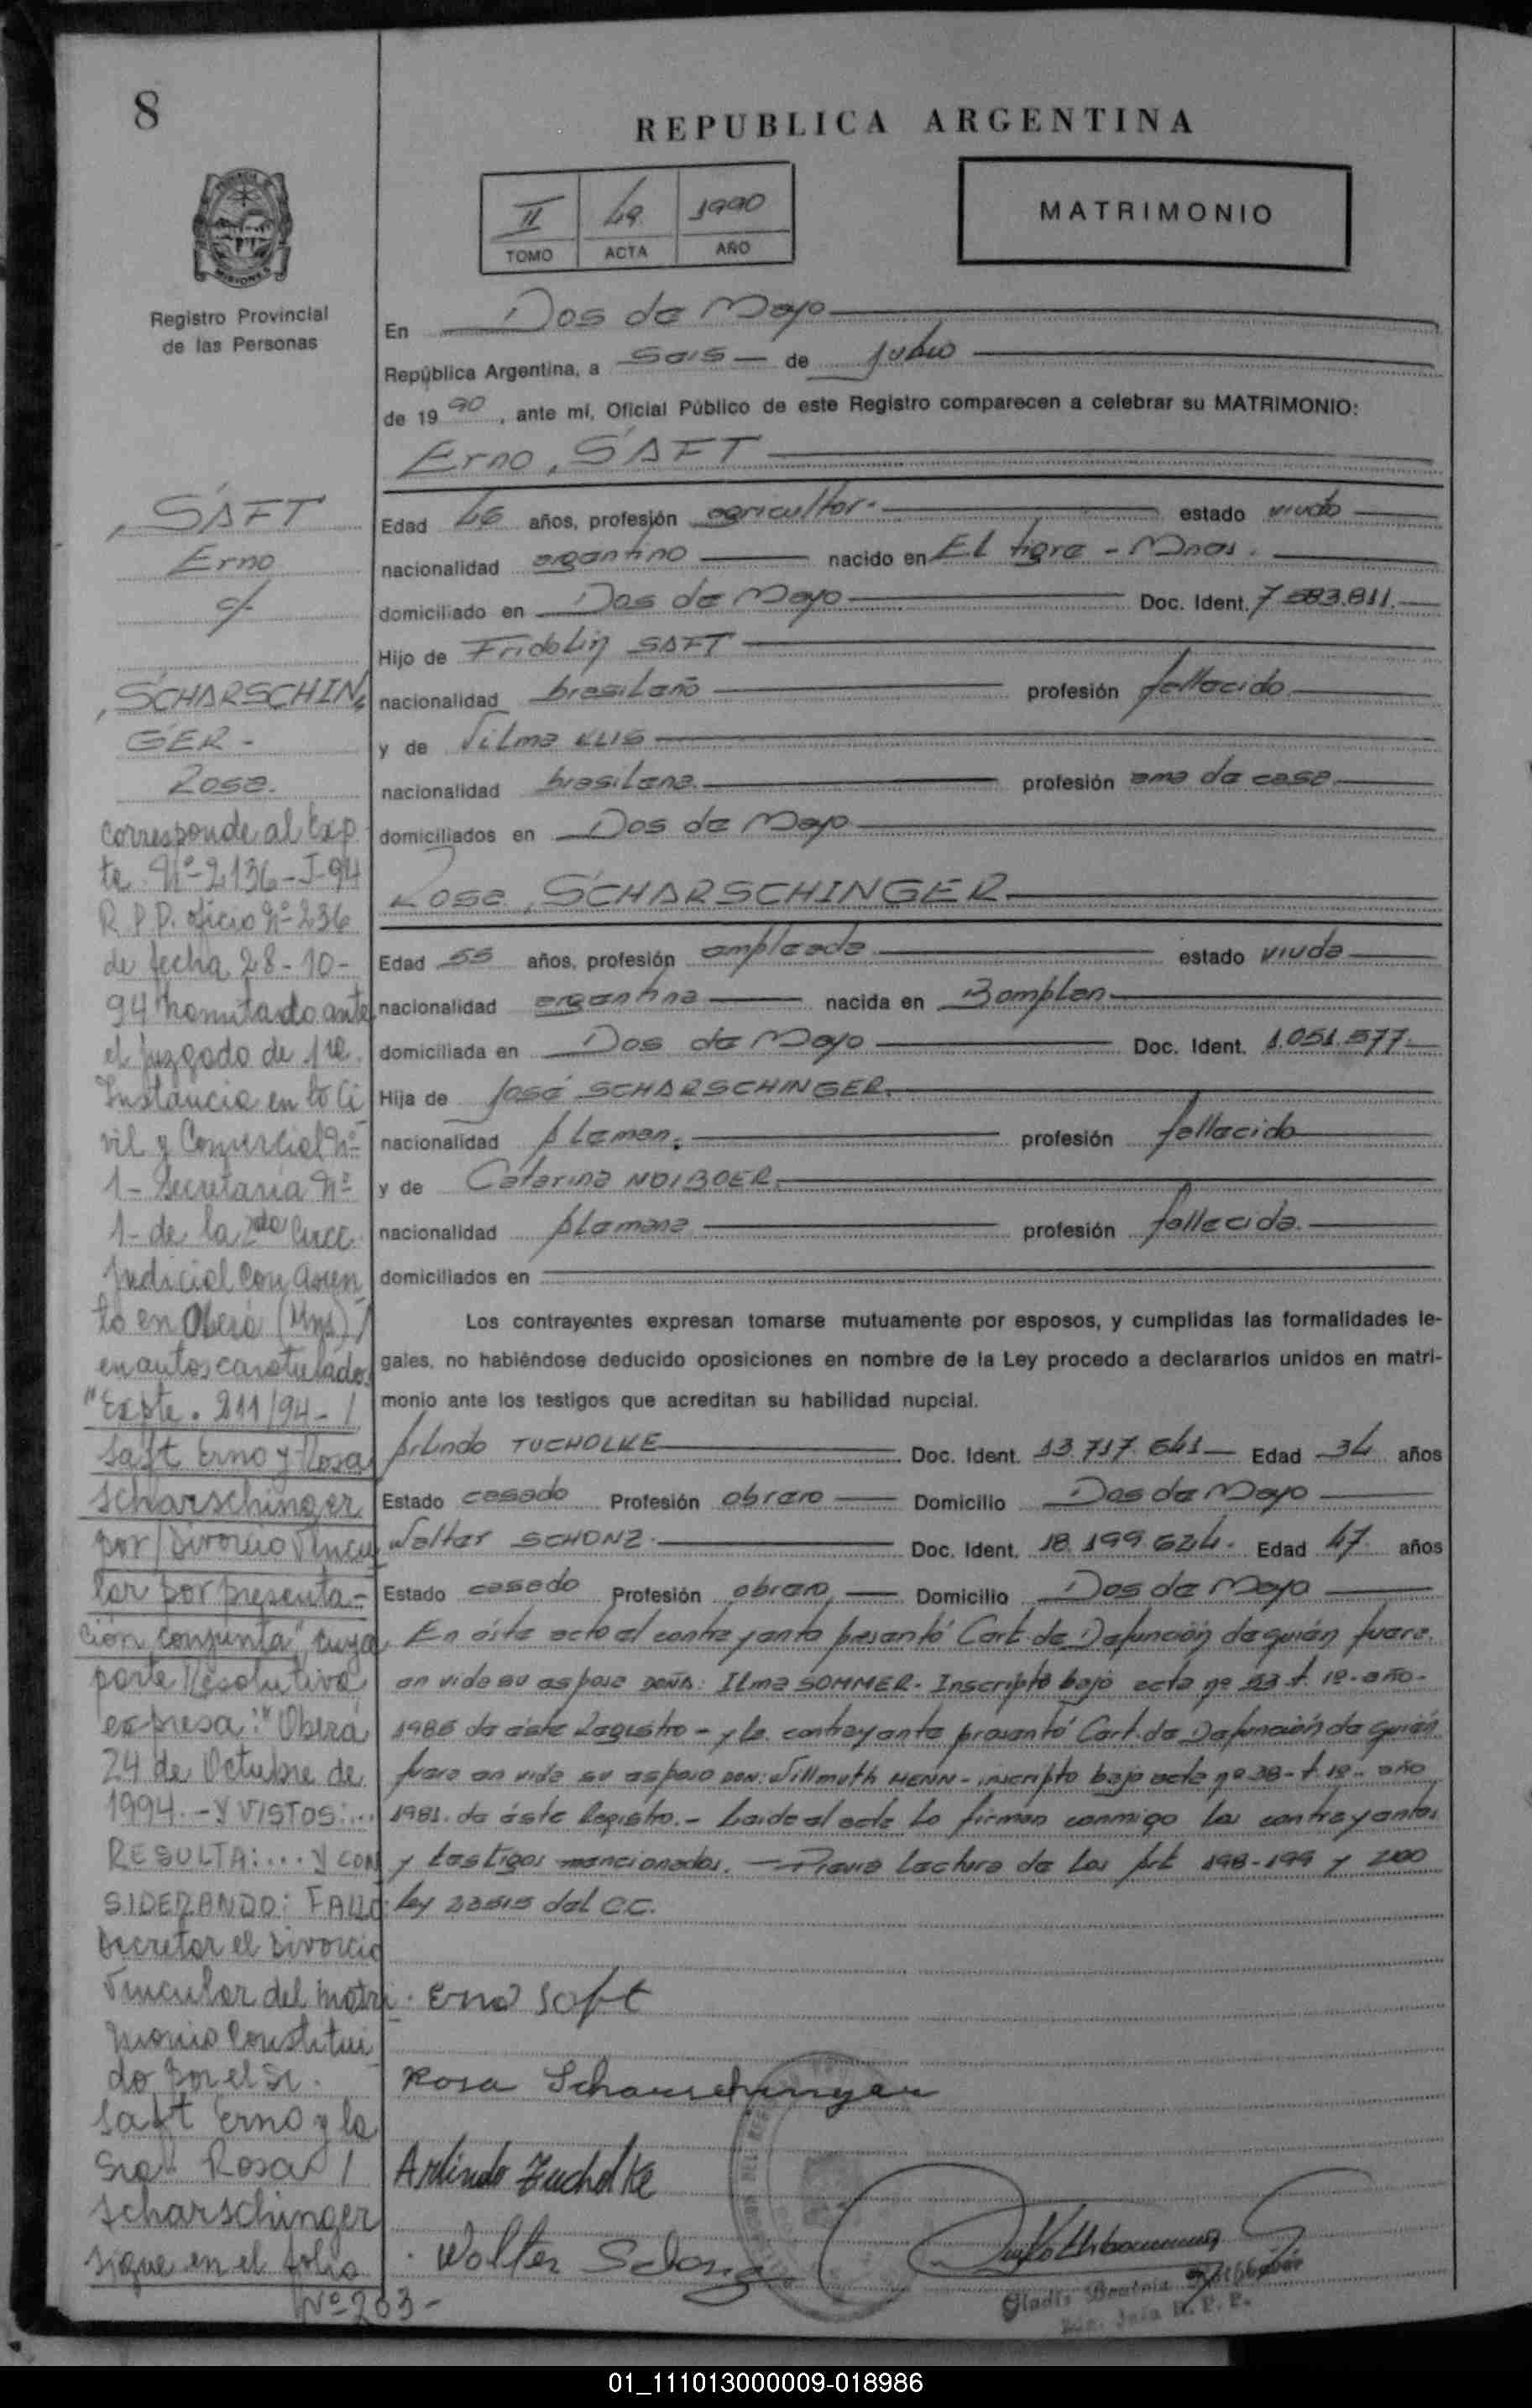 8
REPUBLICA ARGENTINA
II 49 1990
TOMO ACTA AÑO
MATRIMONIO
Registro Provincial
de las Personas
En Dos de Mayo
República Argentina, a Seis de Julio
de 1990, ante mí, Oficial Público de este Registro comparecen a celebrar su MATRIMONIO:
Erno, SAFT
Edad 46 años, profesión agricultor. estado viudo
nacionalidad argentino nacido en El tigre - Mnes.
domiciliado en Dos de Mayo Doc. Ident. 7.583.811.
Hijo de Fridolin SAFT
nacionalidad brasileño profesión fallecido
y de Vilma KLIS
nacionalidad brasilena. profesión ama de casa
domiciliados en Dos de Mayo
Rosa, SCHARSCHINGER
Edad 55 años, profesión empleada estado viuda
nacionalidad argentina nacida en Bomplan
domiciliada en Dos de Mayo Doc. Ident. 1.051.577.
Hija de José SCHARSCHINGER.
nacionalidad Aleman. profesión fallecido
y de Catarina NOIBOER.
nacionalidad Alemana profesión fallecida.
domiciliados en
Los contrayentes expresan tomarse mutuamente por esposos, y cumplidas las formalidades le-
gales, no habiéndose deducido oposiciones en nombre de la Ley procedo a declararlos unidos en matri-
monio ante los testigos que acreditan su habilidad nupcial.
Arlindo TUCHOLKE Doc. Ident. 13.717.641 Edad 34 años
Estado casado Profesión obrero Domicilio Dos de Mayo
Walter SCHONZ. Doc. Ident. 18.199.624. Edad 47 años
Estado casado Profesión obrero, Domicilio Dos de Mayo
En éste acto el contrayente presentó Cert. de Defunción de quién fuera
en vida su esposa DOÑA: Ilma SOMMER. Inscripto bajo acta nº 53 t. 1º. año.
1985 de éste Registro - y la contrayente presentó Cert. de Defunción de quién
fuera en vida su esposo DON: Willmuth HENN - inscripto bajo acta nº 38 - t. 1º. año
1981. de éste Registro. - Leida el acta lo firman conmigo los contrayentes
y testigos mencionados. - Previa lectura de los Art 198-199 y 200
ley 23515 del C.C.
Erno Saft
Rosa Scharschinger
Arlindo Tucholke
Walter Schonz
Gladis Beatriz
R. P. P.
SAFT
Erno
c/
SCHARSCHIN
GER -
Rosa.
Corresponde al Exp
te. Nº 2136-J-94
R.P.P. oficio Nº 236
de fecha 28-10-
94 tramitado ante
el Juzgado de 1ra.
Instancia en lo Ci
vil y Comercial Nº
1- Secretaria Nº
1- de la 2da Circc.
Judicial con asien
to en Oberá (Mns) /
en autos caratulados
"Expte. 211/94- /
Saft Erno y Rosa
Scharschinger
por/Divorcio Vincu
lar por presenta-
ción conjunta", cuya
parte Resolutiva
expresa: "Oberá
24 de Octubre de
1994. - Y VISTOS:...
RESULTA:... Y CON
SIDERANDO: FALLO
Decretar el Divorcio
Vincular del matri
monio Constitui
do por el Sr.
Saft Erno y la
Sra. Rosa /
Scharschinger
sigue en el folio
Nº 203-
01_111013000009-018986